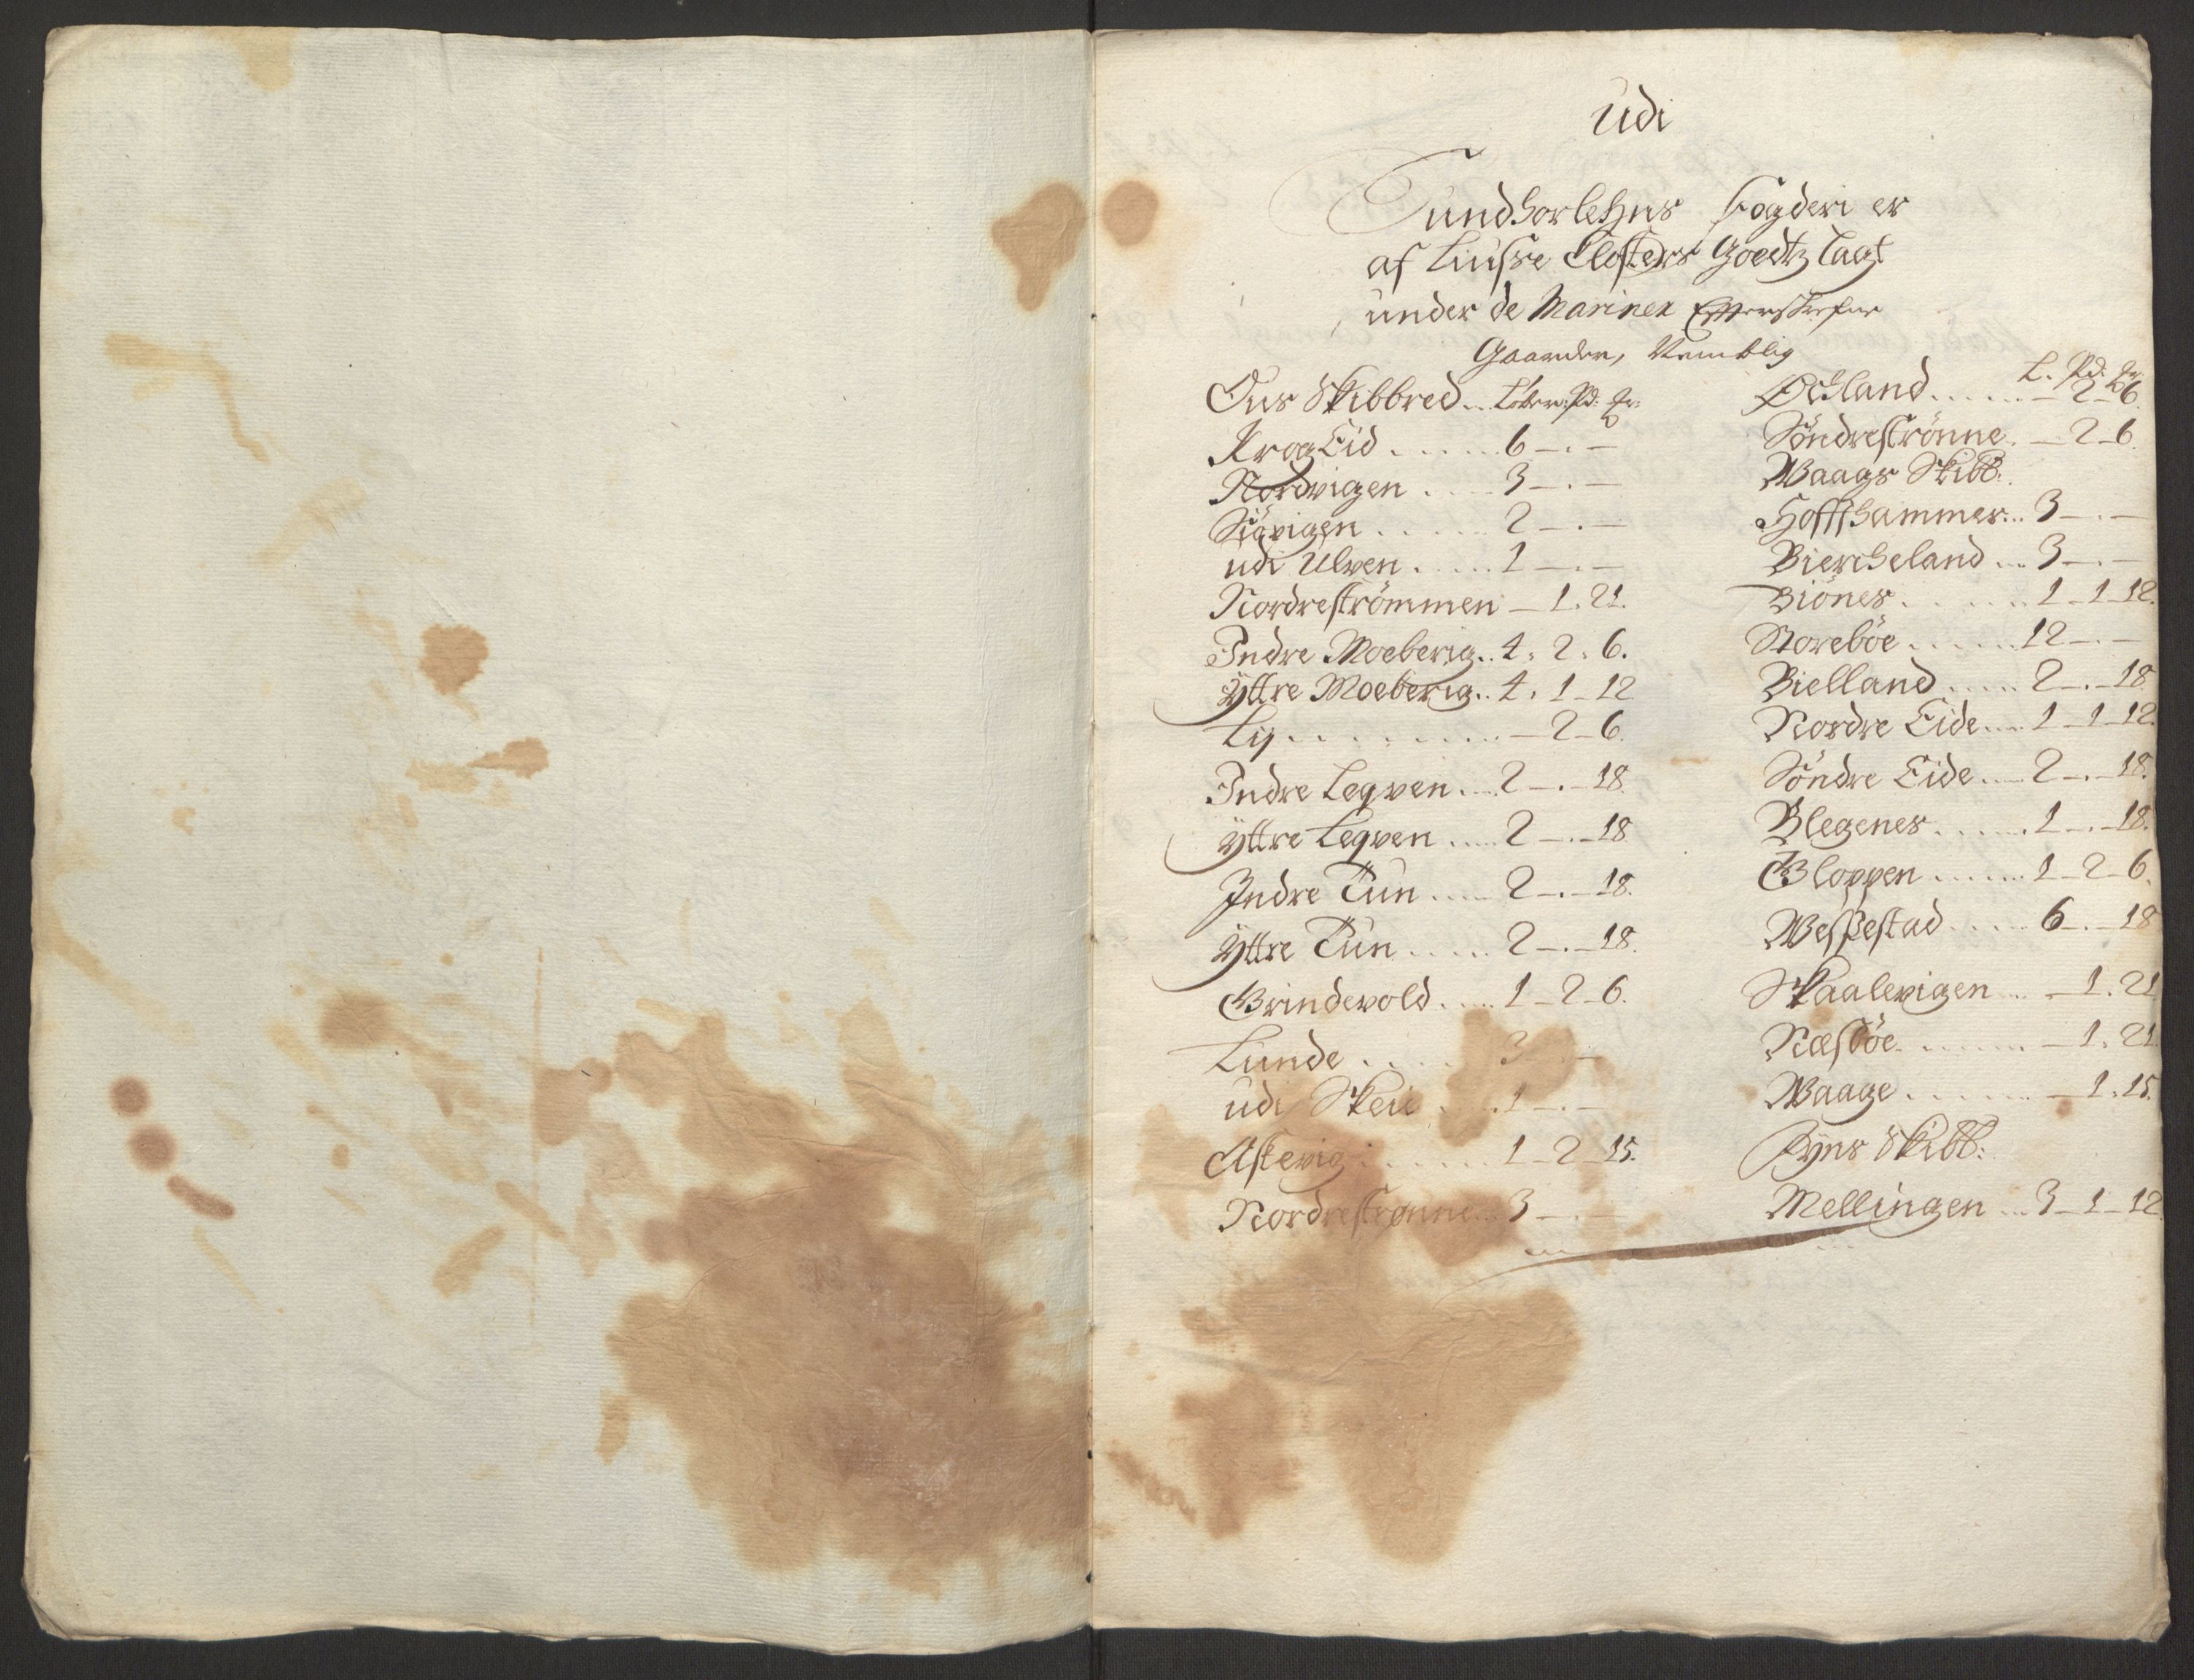 Udi
Sundhorlehns Fogderi er
af Liusse Closters Goedtz lagt
under de Mariner Effterskrefne
Gaarder, Nemblig
Ous Skibbred.. Løber: Pd: Mr:
KrogEid ..... 6 — . —
Nordvigen .... 3 — . —
Siövigen ..... 2 — . —
udi Ulven ..... 1 — . —
Nordreströmmen — 1. 21.
Indre Moeberig.. 4. 2. 6.
Yttre Moeberig.. 4. 1 _ 12
Lij ......... — 2 _ 6.
Indre Legven .... 2 — . — 18
Yttre Legven ..... 2 — . — 18
Indre Tun ..... 2 — . — 18.
Yttre Tun ...... 2 — . — 18.
Grindevold ..... 1 _ 2 _ 6.
Lunde .... 3 — . —
udi Skeie .... 1 — . —
Askevig ....... 1 _ 2 _ 15.
Nordreströnne ... 3 — . —
L. Pd: Mr
Øchland ...... — 2 _ 6.
Söndreströnne. — 2 _ 6
Waags Skibb:
Hoffshammer... 3 — . —
Biercheland ... 3 — . —
Biönes ...... 1 _ 1 _ 12.
Storebøe ...... 12 — . —
Bielland ..... 2 — . — 18
Nordre Eide .... 1 _ 1 _ 12.
Söndre Eide .... 2 — . — 18.
Blegenes ...... 1 — . — 18.
Gloppen ...... 1 _ 2 _ 6.
Wespestad ..... 6 — . — 18
Skaalevigen ... — 1. 21
Næsbøe ...... — 1. 21.
Waage ...... — 1. 15.
Fyns Skibb:
Mellingen ... 3 _ 1 _ 12